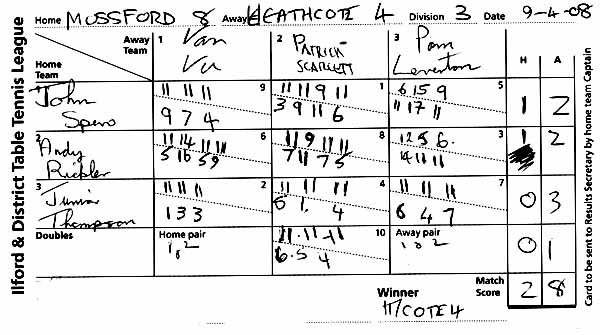 Ilford & District Table Tennis League
Home MOSSFORD 8 Away HEATHCOTE 4 Division 3 Date 9-4-08
Away Team 1 Van Vu 2 PATRICK SCARLETT 3 Pam Leverton H A
Home Team
1 John Spero 9 11 11 11 1 11 11 9 11 5 6 15 9 1 2
9 7 4 3 9 11 6 11 17 11
2 Andy Rickler 6 11 14 11 11 8 11 9 11 11 3 12 5 6 1 2
5 16 5 9 7 11 7 5 14 11 11
3 Junior Thompson 2 11 11 11 4 11 11 11 7 11 11 11 0 3
1 3 3 6 1 4 6 4 7
Doubles Home pair 1&2 10 11 11 11 Away pair 1&2 0 1
6 5 4
Winner H/COTE 4 Match Score 2 8
Card to be sent to Results Secretary by home team Captain